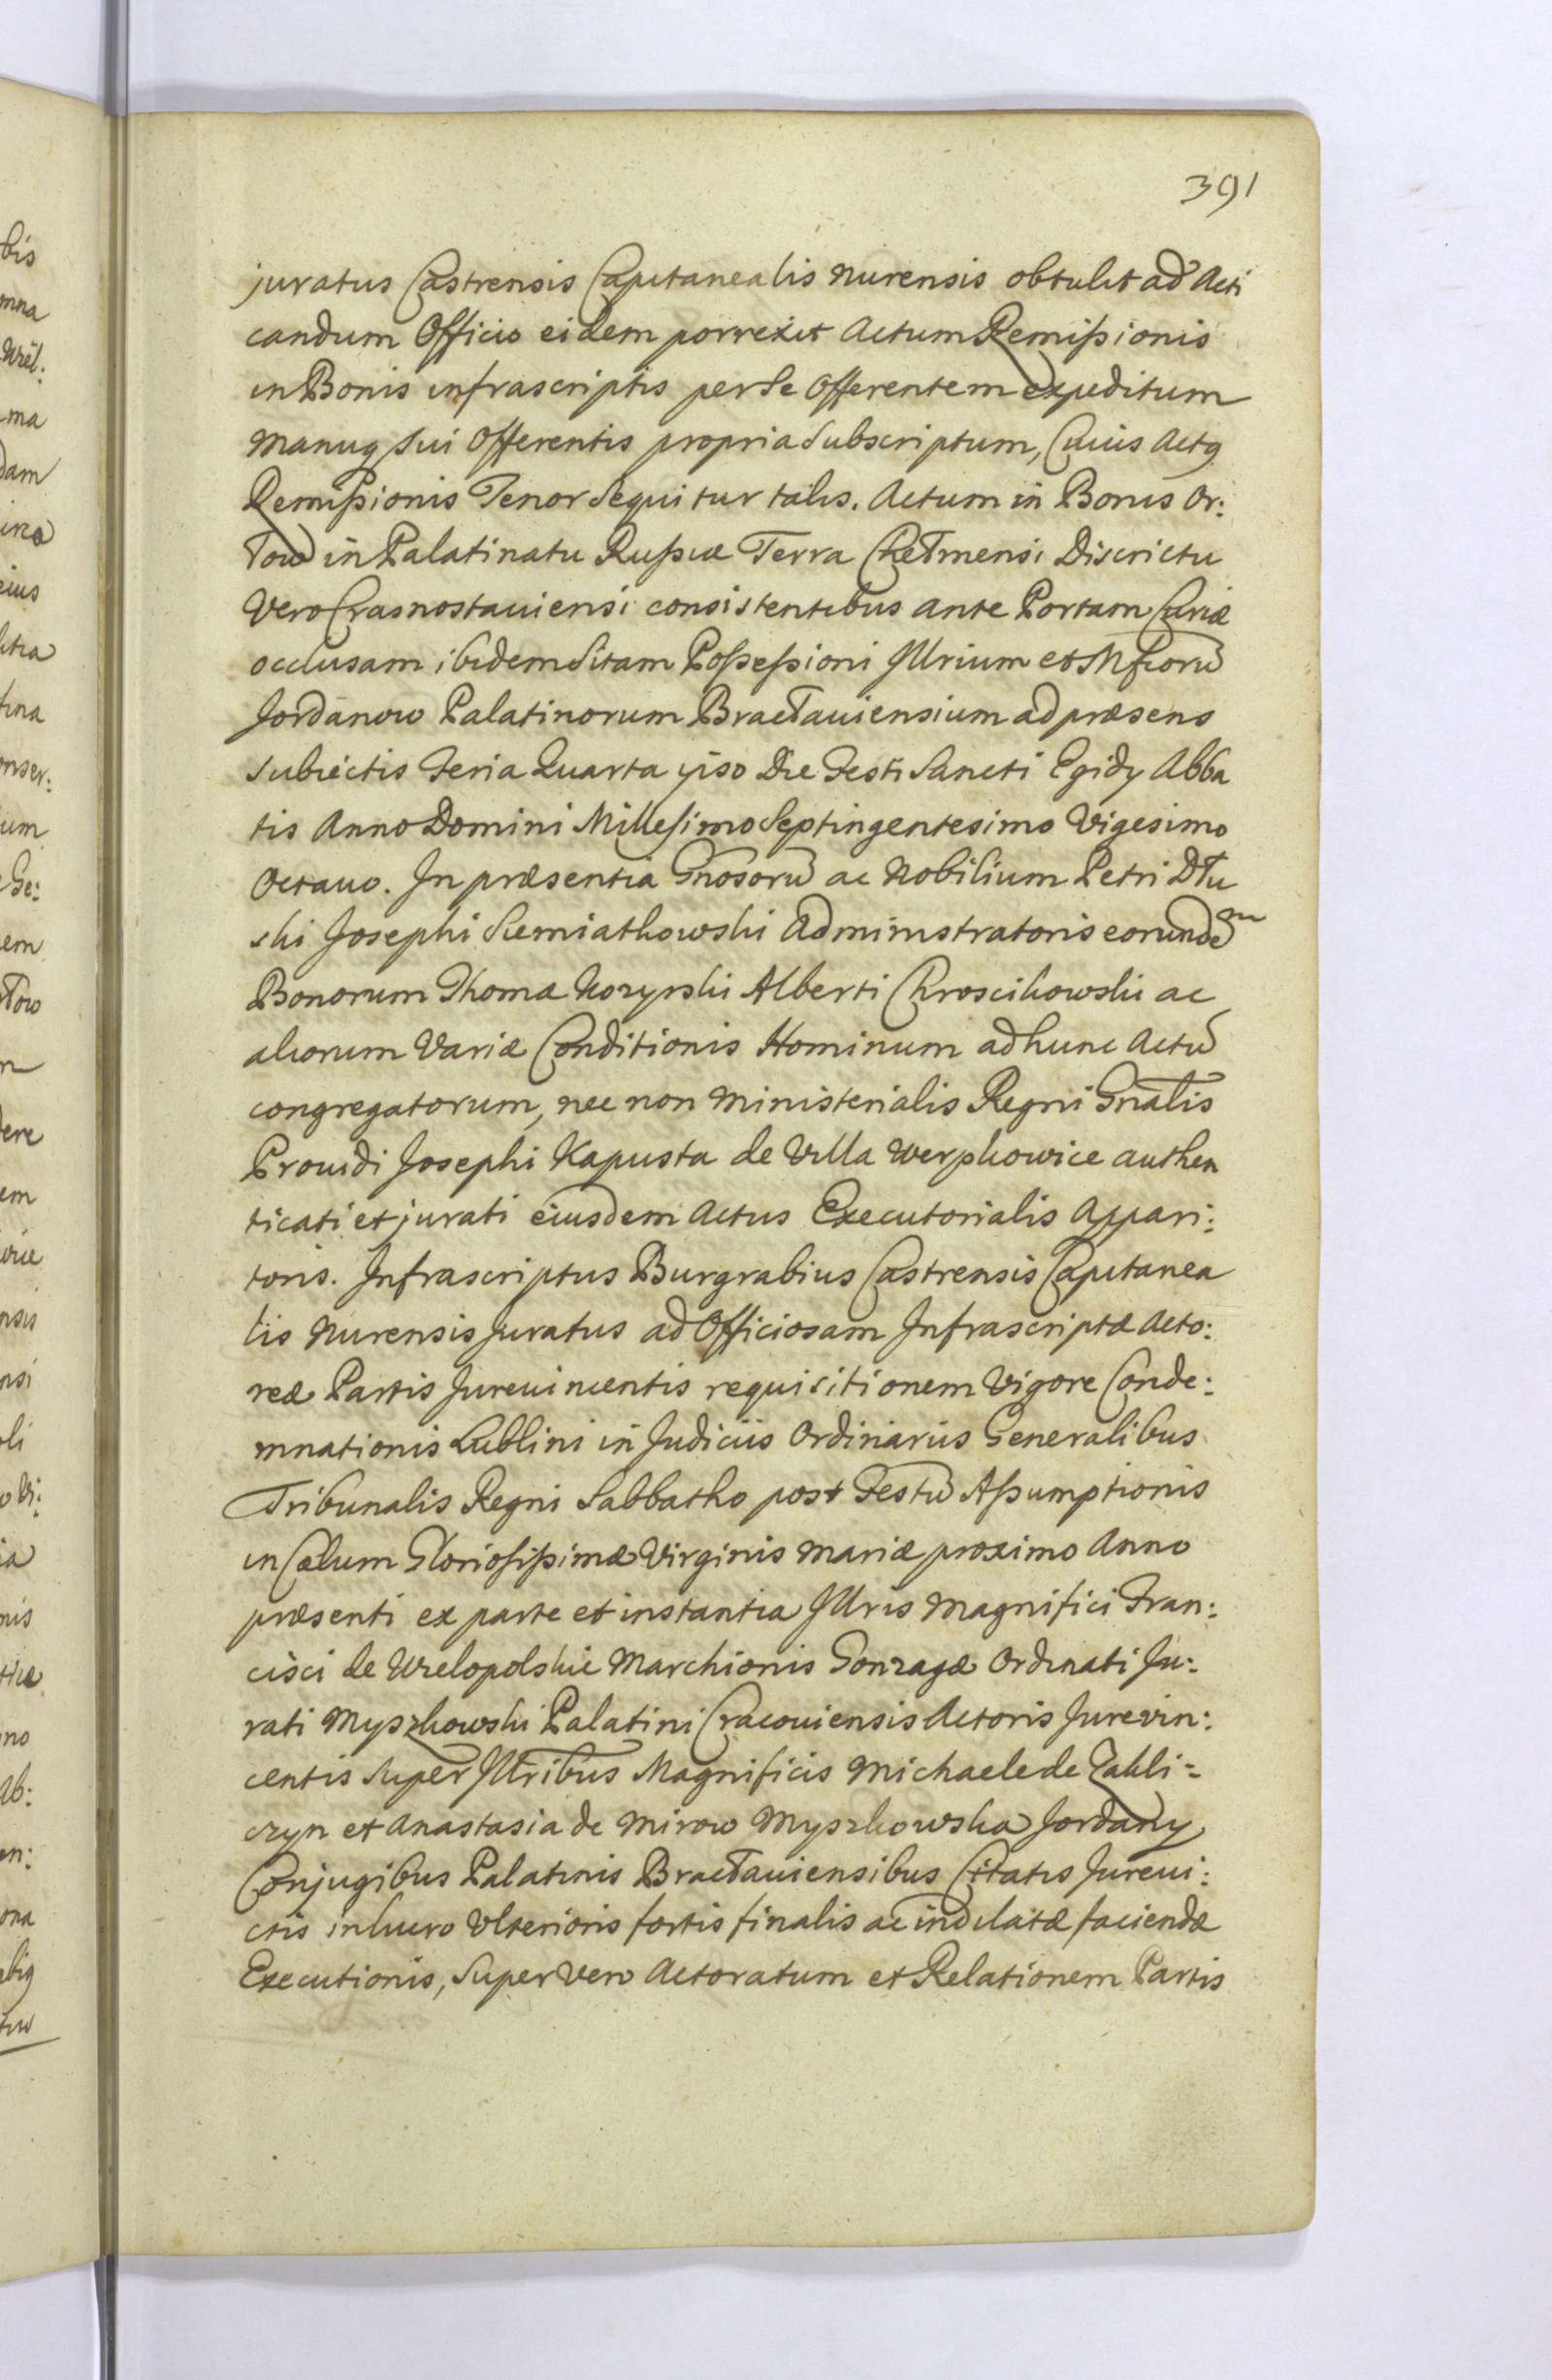 391
juratus Castrensis Capitanealis Nurensis obtulit ad Acti
candum Officio eidem porrexit Actum Remißionis
in Bonis infrascriptis per se Offerentem expeditum
Manuq sui Offerentis propria Subscriptum, Cuius Actq
Remißionis Tenor Sequitur talis. Actum in Bonis Or:
łow in Palatinatu Rußiæ Terra Chełmensi Districtu
Vero Crasnostaviensi consistentibus ante Portam Curiæ
occlusam ibidem Sitam Poßeßioni Jllrium et Mficorū
Jordanow Palatinorum Bracłaviensium ad præsens
subiectis Feria Quarta ipso Die Festi Sancti Egidy Abba
tis Anno Domini Millesimo Septingentesimo Vigesimo
Octavo. In præsentia Gnosorū ac Nobilium Petri Dłu
ski Josephi Siemiatkowski Administratoris eorundem
Bonorum Thoma Kozyrski Alberti Chroscikowski ac
aliorum Variæ Conditionis Hominum ad hunc Actū
congregatorum, nec non Ministerialis Regni Gnalis
Providi Josephi Kapusta de Villa Werzchowice authen
ticati et jurati eiusdem Actus Executorialis Appari:
toris. Infrascriptus Burgrabius Castrensis Capitanea
lis Nurensis Juratus ad Officiosam Infrascriptæ Acto:
reæ Partis Jurevincentis requisitionem Vigore Conde:
mnationis Lublini in Judiciis Ordinariis Generalibus
Tribunalis Regni Sabbatho post Festū Aßumptionis
in Cælum Gloriosißimæ Virginis Mariæ proximo Anno
præsenti ex parte et instantia Jllris Magnifici Fran:
cisci de Wielopolskie Marchionis Gonzagæ Ordinati Ju:
rati Myszkowski Palatini Cracoviensis Actoris Jurevin:
centis Super Jllribus Magnificis Michaele de Zakli=
czyn et Anastasia de Mirow Myszkowska Jordany
Conjugibus Palatinis Bracłaviensibus Citatis Jurevi:
ctis in lucro Ulterioris fortis finalis ac indilatæ faciendæ
Executionis, Super Vero Actoratum et Relationem Partis